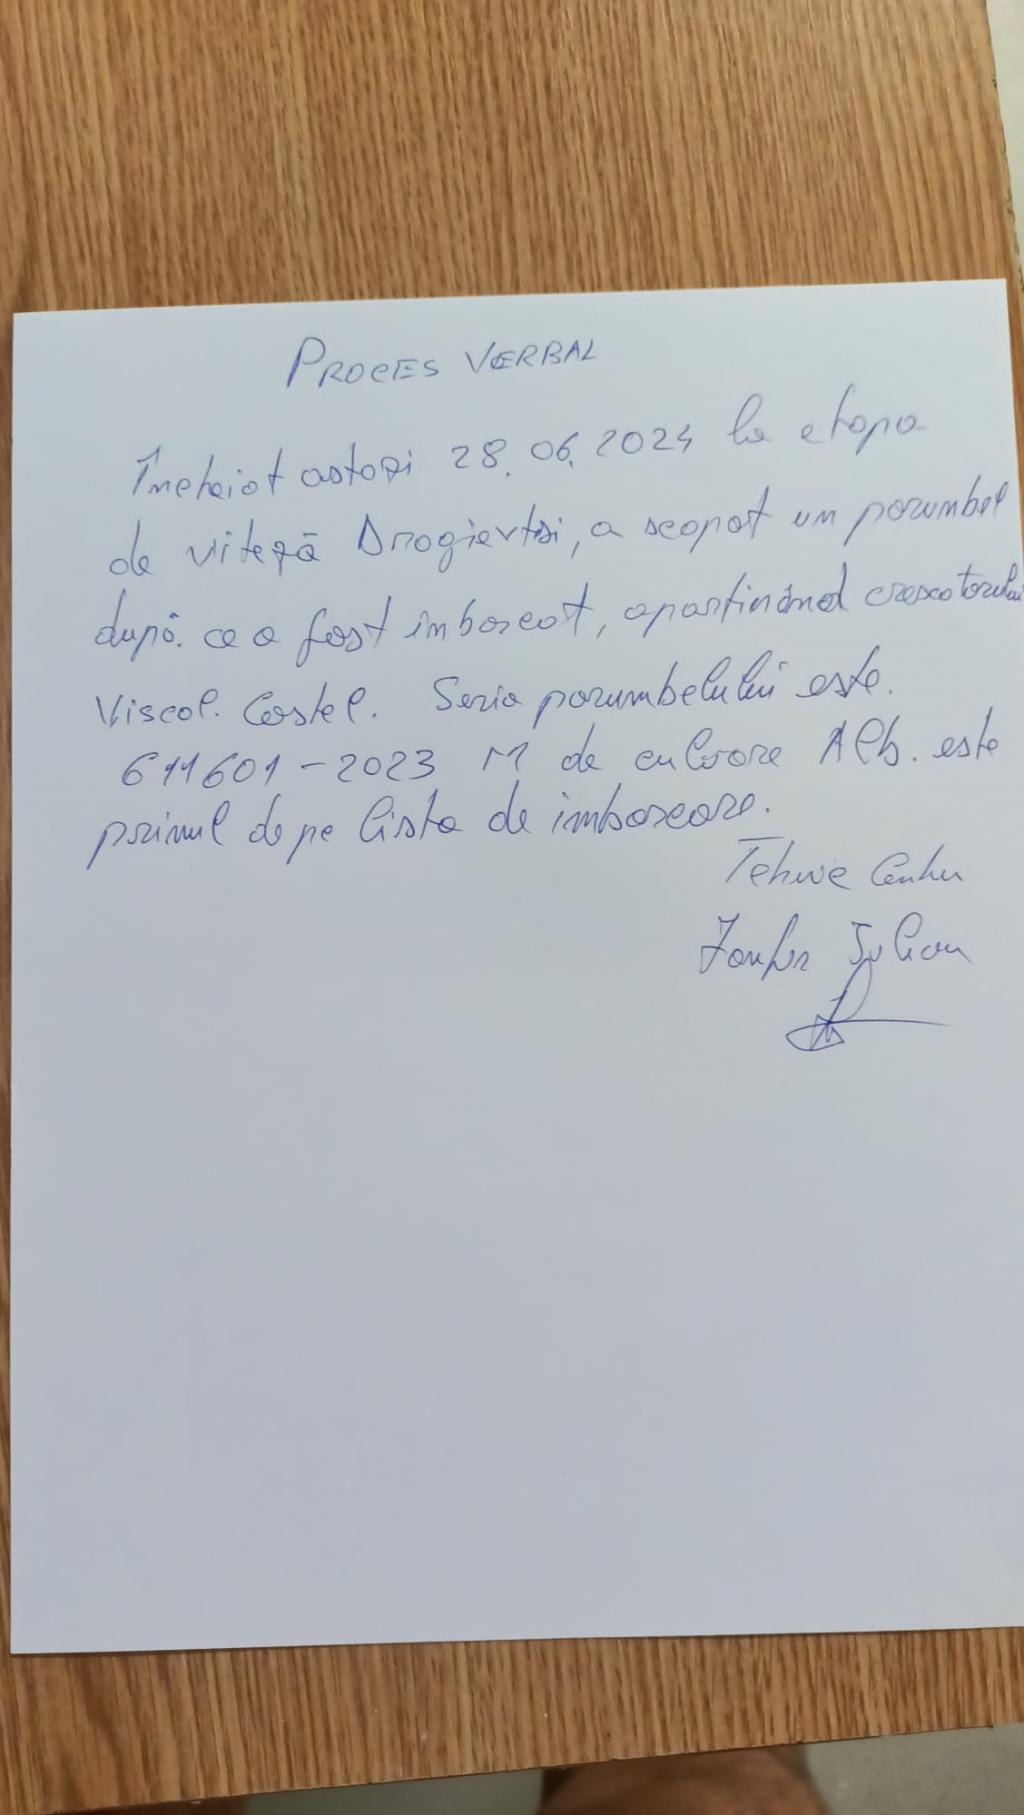 PROCES VERBAL
Încheiat astazi 28.06.2024 la etapa
de viteză a scapat un porumbel
după ce a fost îmbarcat, aparținând crescatorului
Viscol Costel. Seria porumbelului este.
611601-2023 M de culoare Alb. este
primul de pe lista de imbarcare.
Iulian